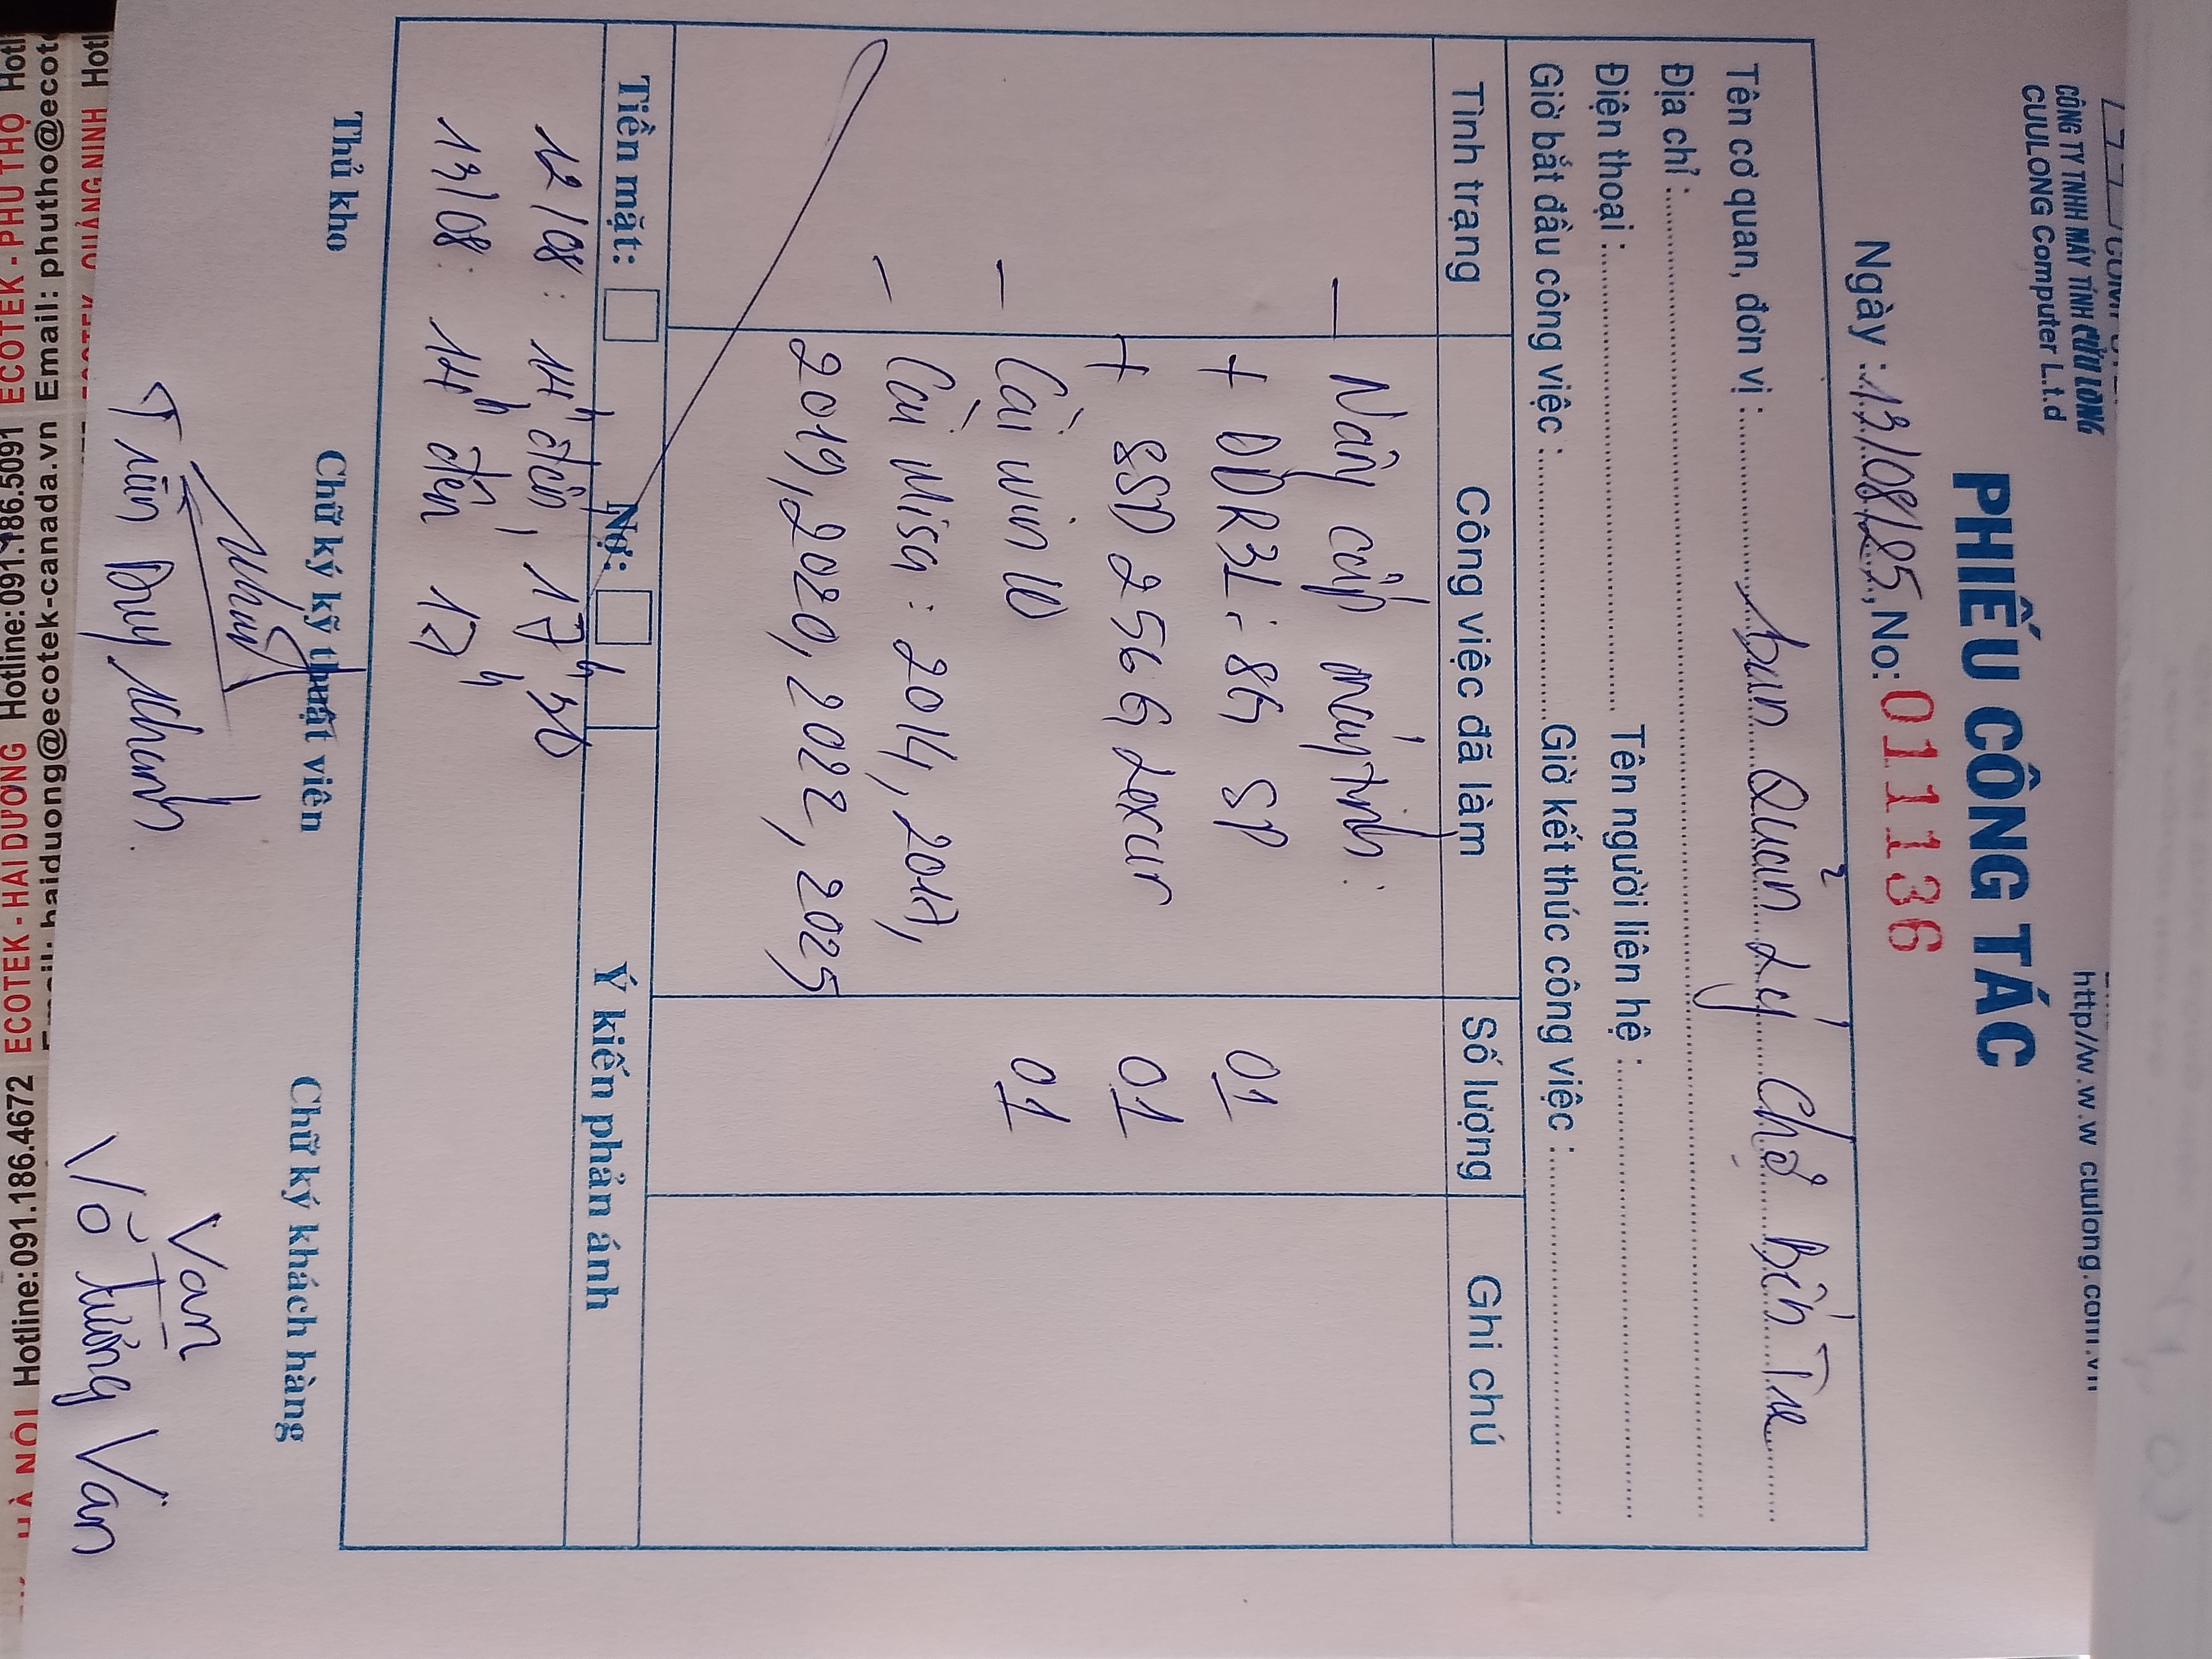 CÔNG TY TNHH MÁY TÍNH CỬU LONG
CUULONG Computer L.t.d
http//w.w.w cuulong.com.vn
PHIẾU CÔNG TÁC
Ngày : 13/08/25, No: 011136
Tên cơ quan, đơn vị : ban Quản Lý Chợ Bến Tre
Địa chỉ :
Điện thoại : Tên người liên hệ :
Giờ bắt đầu công việc : Giờ kết thúc công việc :
Tình trạng Công việc đã làm Số lượng Ghi chú
- Nâng cấp máy tính:
+ DDR3L: 8G SP 01
+ SSD 256G Lexar 01
- Cài win 10 01
- Cài Misa: 2014, 2017,
2019, 2020, 2022, 2025
Tiền mặt: Nợ: Ý kiến phản ánh
12/08: 14h đến 17h30
13/08: 14h đến 17h
Thủ kho Chữ ký kỹ thuật viên Chữ ký khách hàng
Khanh Van
Trần Duy Khanh Võ Tường Vân
ECOTEK - PHÚ THỌ Hotl
Email: phutho@ecote
QUẢNG NINH Hotl
ECOTEK - HẢI DƯƠNG Hotline:091.186.5091
Email: haiduong@ecotek-canada.vn
HÀ NỘI Hotline:091.186.4672